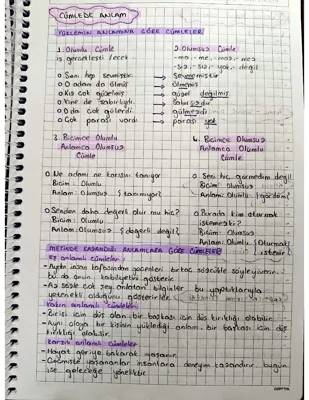 CÜMLEDE ANLAM
YÜKLEMİN ANLAMINA GÖRE CÜMLELER
1. Olumlu Cümle 2. Olumsuz Cümle
iş gerçekleşti /ecek -ma, -me, -maz, -mez
-sız, -siz, yok, değil
o Seni hep sevmiştir → sevmemiştir
o O adam da ölmüş → ölmemiş
o Kış çok güzelmiş → güzel değilmiş
o Yine de sabırlıydı → sabırsızdı
o O da çok gülerdi → gülmezdi
o Çok parası vardı → parası yok
3. Biçimce Olumlu 4. Biçimce Olumsuz
Anlamca Olumsuz Anlamca Olumlu
Cümle Cümle
o Ne adam ne karısını tanıyor o Seni hiç görmedim değil
Biçim: Olumlu Biçim: Olumsuz
Anlam: Olumsuz (tanımıyor) Anlam: Olumlu (gördüm)
o Senden daha değerli olur mu hiç? o Burada kim oturmak
Biçim: Olumlu istemez ki?
Anlam: Olumsuz (değerli değil) Biçim: Olumsuz
Anlam: Olumlu (Oturmak ister)
METİNDE KAZANDIĞI ANLAMLARA GÖRE CÜMLELER
Eş anlamlı cümleler:
- Aydın insan kafasından geçenleri birkaç sözcükle söyleyiversin.
Bu da onun kabiliyetini gösterir.
- Az sözle çok şey anlatan bilginler bu yaptıklarıyla
yetenekli olduğunu gösterirler.
Yakın anlamlı cümleler:
- Birisi için düş olan bir başkası için düş kırıklığı olabilir.
- Aynı olaya bir kişinin yüklediği anlam bir başkası için düş
kırıklığı olabilir.
Karşıt anlamlı cümleler:
- Hayat geriye bakarak yaşanır.
- Geçmişte yaşananlar insanlara deneyim kazandırır bugün
ise geleceğe yöneliktir.